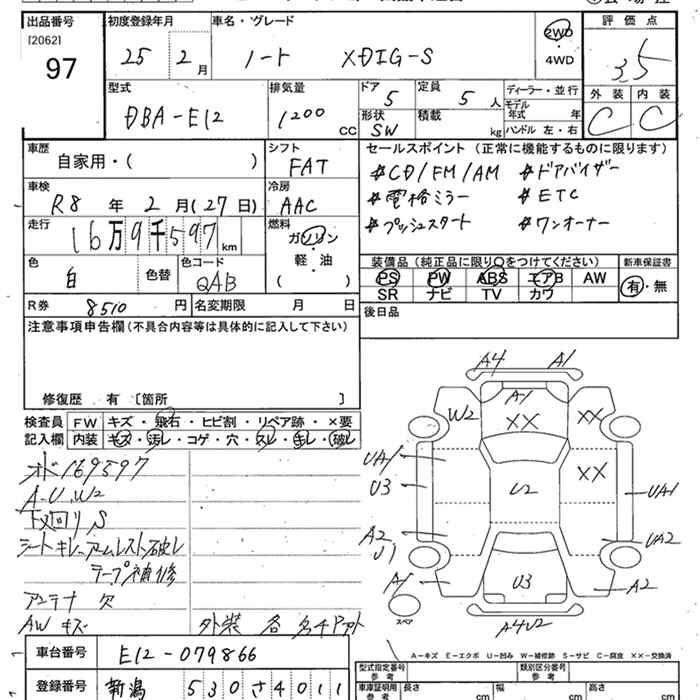 出品番号 初度登録年月 車名・グレード 評価点
[2062]
97
25 2月 ノート X DIG-S 2WD・4WD 3.5
型式 排気量 ドア 定員 ディーラー・並行 外装 内装
DBA-E12 1200CC 5 5人 モデル年式 年 C C
形状 積載 ハンドル 左・右
SW kg
車歴 シフト セールスポイント(正常に機能するものに限ります)
自家用・( ) FAT
#CD/FM/AM #ドアバイザー
車検 冷房 #電格ミラー #ETC
R8年 2月(27日) AAC #プッシュスタート #ワンオーナー
走行 燃料
16万9千597km ガソリン・軽・油( )
色 色替 色コード 装備品(純正品に限り○をつけてください) 新車保証書
白 QAB PS PW ABS エアB AW 有・無
SR ナビ TV カワ
R券 8510円 名変期限 月 日 後日品
注意事項申告欄(不具合内容等は具体的に記入して下さい)
修復歴 有 [箇所 ]
検査員 FW キズ・飛石・ヒビ割・リペア跡・×要
記入欄 内装 キズ・汚レ・コゲ・穴・スレ・キレ・破レ
オド169597
A-U.W2
下廻りS
シートキレ アームレスト破レ
テープ補修
アンテナ欠
AWキズ
外装各名チアト
A4 A1
A1
W2 XX XX
UA1 XX
U3 U2 UA1
A2 UA2
U1
A1 U3 A2
スペア
A4U2
A-キズ E-エクボ U-凹み W-補修跡 S-サビ C-腐食 XX-交換済
車台番号 E12-079866
型式指定番号 参考 類別区分番号 参考
登録番号 新潟 530さ4011
車庫証明用参考 長さ cm 幅 cm 高さ cm